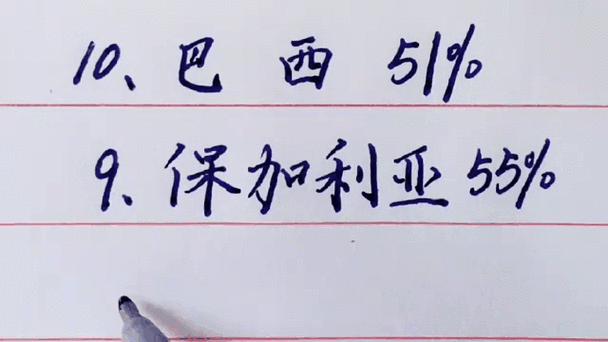 10、巴西 51%
9、保加利亚 55%